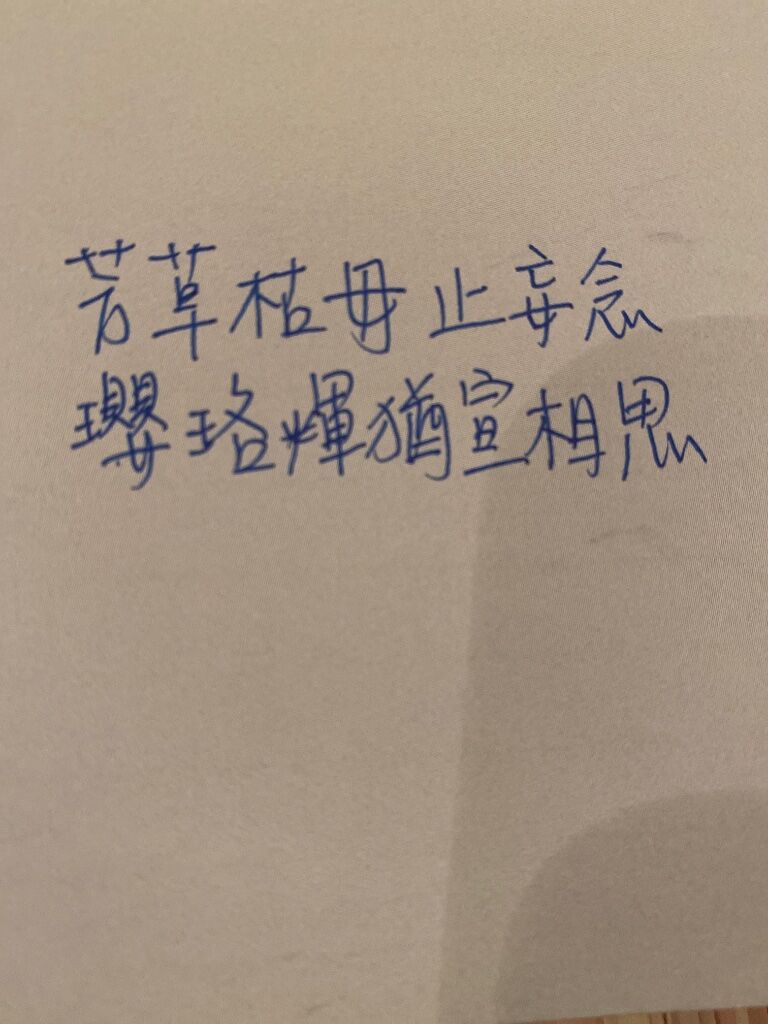 芳草枯毋止妄念
瓔珞煇猶宣相思